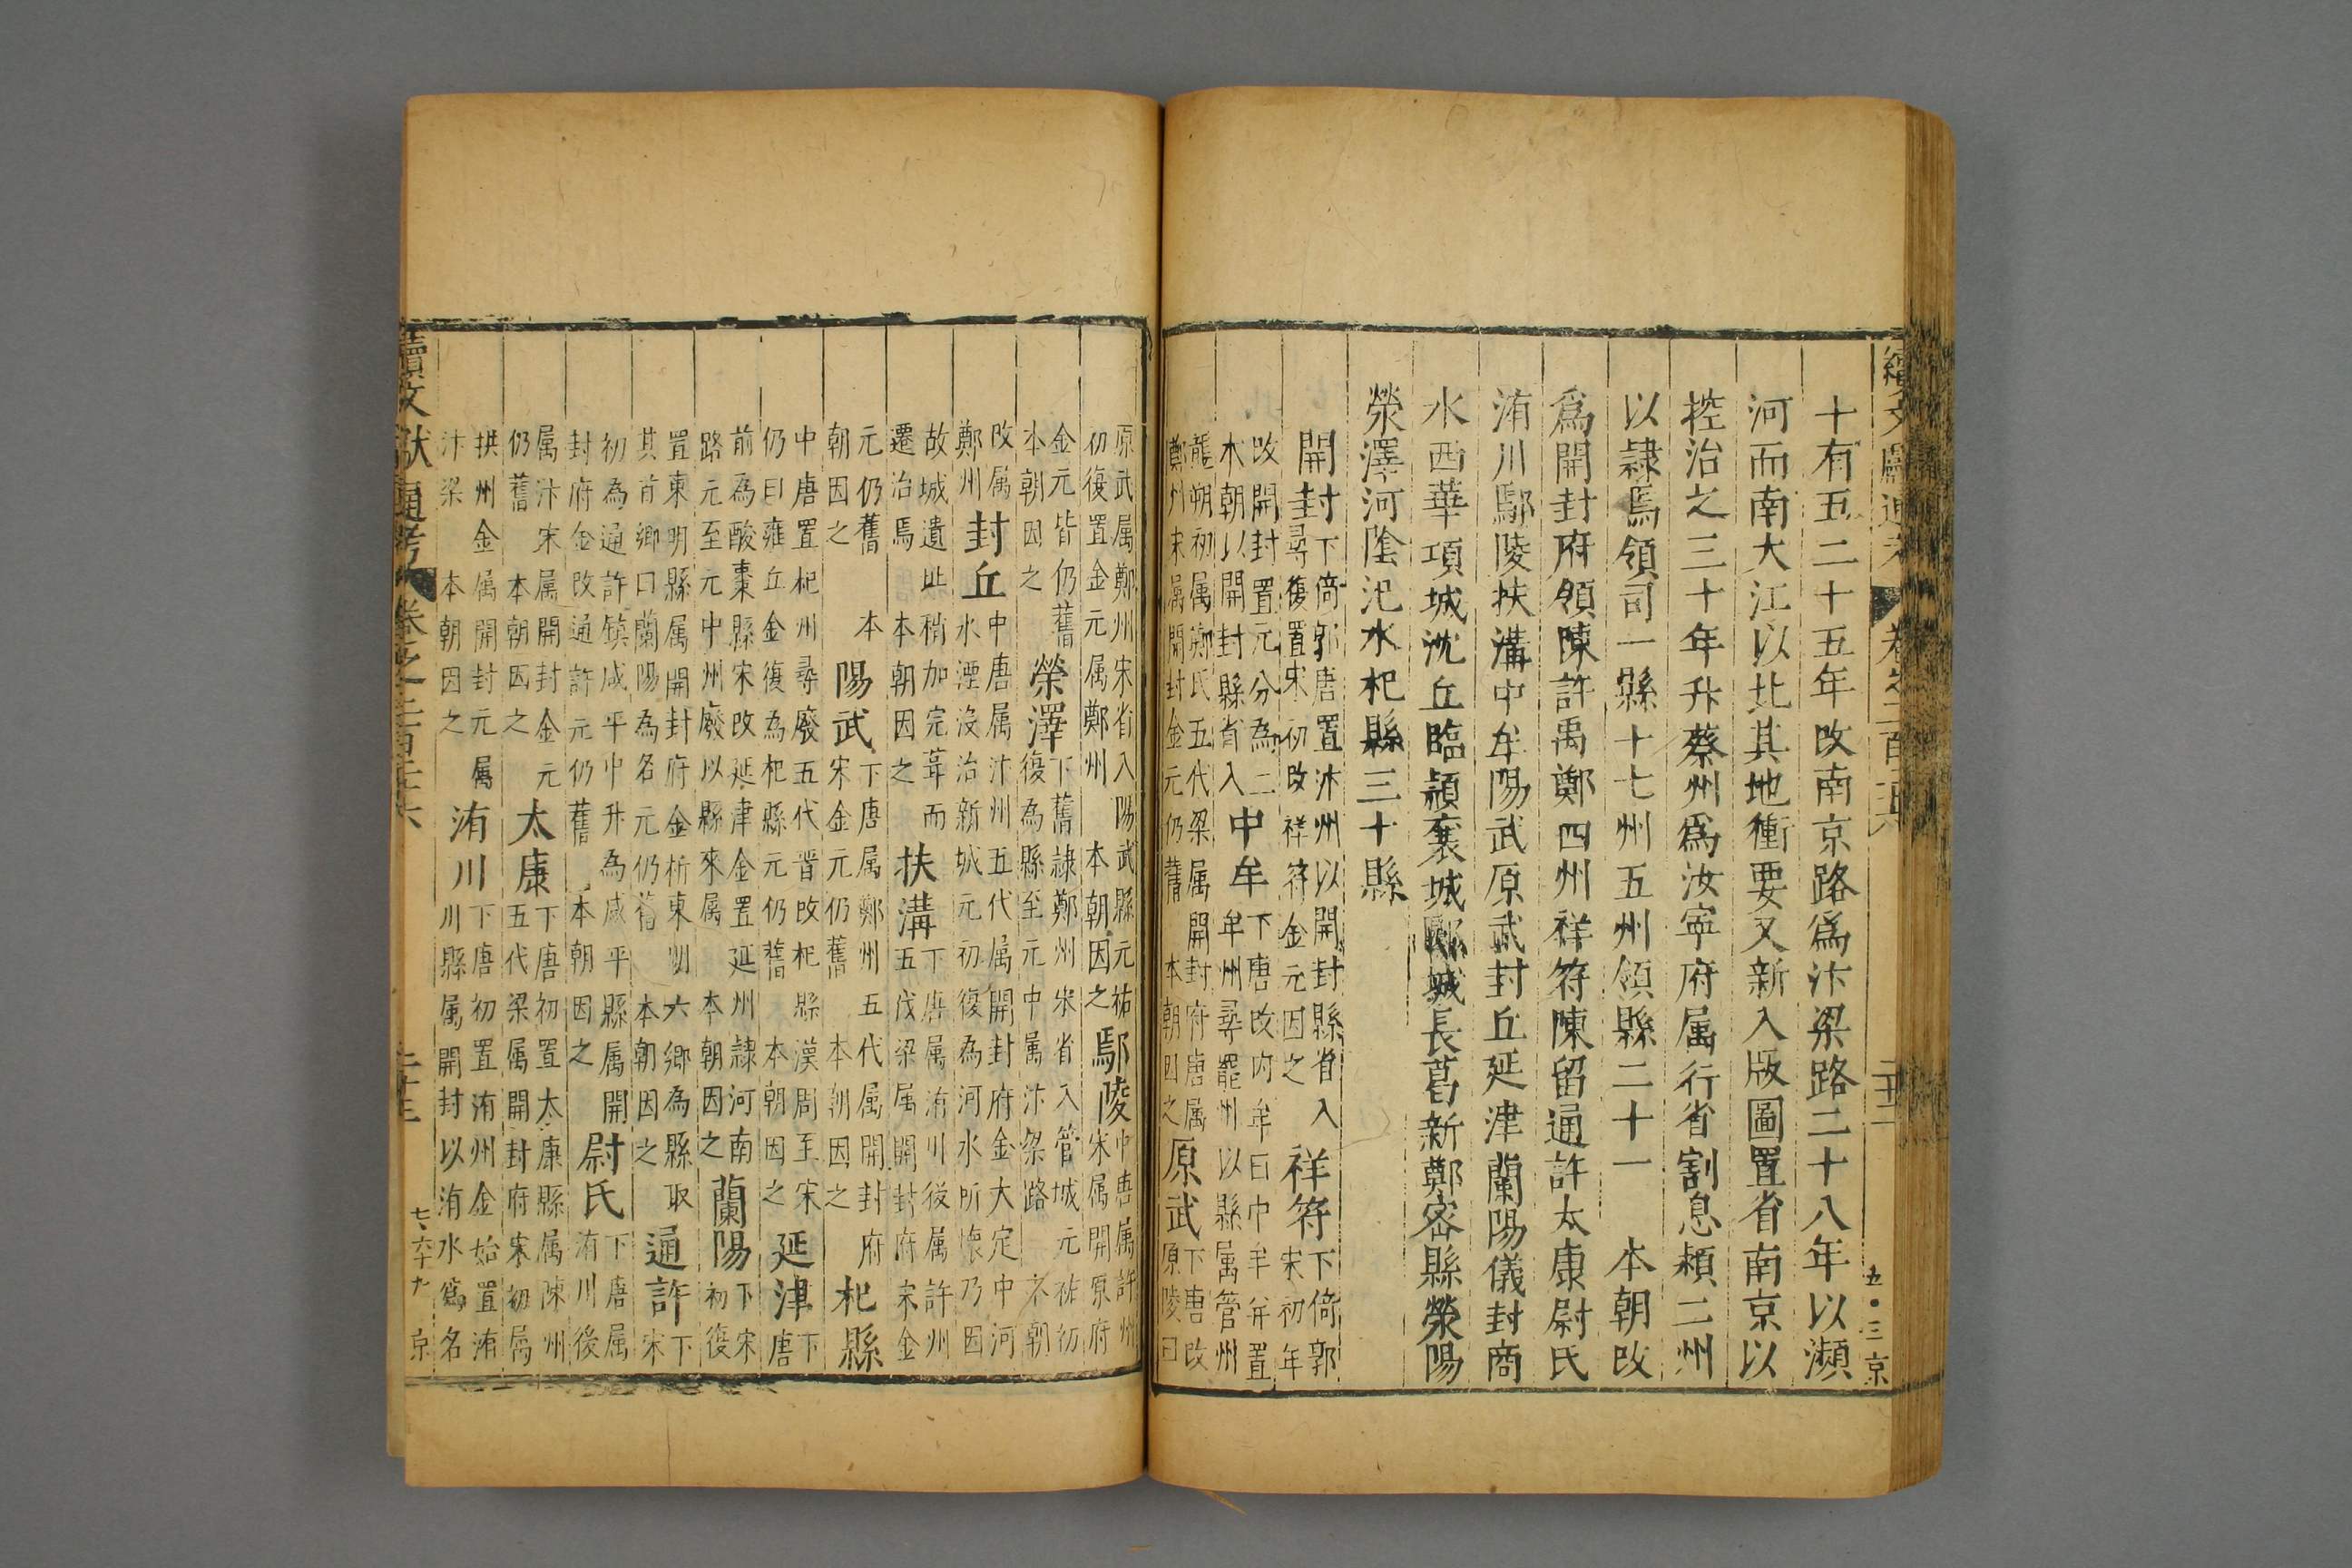 十有五二十五年改南京路爲汴梁路二十八年以瀕
河而南大江以北其地衝要又新入版圖置省南京以
控治之三十年升蔡州爲汝寧府属行省割息潁二州
以隷焉領司一縣十七州五州領縣二十一 本朝改
爲開封府領陳許禹鄭四州祥符陳留通許太康尉氏
洧川鄢陵扶溝中牟陽武原武封丘延津蘭陽儀封商
水西華項城沈丘臨潁襄城郾城長葛新鄭密縣滎陽
滎澤河陰汜水杞縣三十縣
開封下倚郭唐置汴州以開封縣省入
尋復置宋初改祥符金元因之 祥符下倚郭
宋初年
改開封置元分為二
本朝以開封縣省入 中牟下唐改内牟曰中牟并置
牟州尋罷州以縣属管州
龍朔初属鄭氏五代梁属開封府唐属
鄭州宋属開封金元仍舊 本朝因之 原武下唐改
原陵曰
原武属鄭州宋省入陽武縣元祐
初復置金元属鄭州 本朝因之 鄢陵中唐属許州
宋属開原府
金元皆仍舊
本朝因之 滎澤下舊隷鄭州宋省入管城元祐初
復為縣至元中属汴梁路 本朝
改属
鄭州 封丘中唐属汴州五代属開封府金大定中河
水湮没治新城元初復為河水所懷乃因
故城遺址稍加完葺而
遷治焉 本朝因之 扶溝下唐属洧川後属許州
五代梁属開封府宋金
元仍舊 本
朝因之 陽武下唐属鄭州五代属開封府
宋金元仍舊 本朝因之 杞縣
中唐置杞州尋廢五代晋改杞縣漢周至宋
仍曰雍丘金復為杞縣元仍舊 本朝因之 延津下
唐
前為酸棗縣宋改延津金置延州隷河南
路元至元中州廢以縣來属 本朝因之 蘭陽下宋
初復
置東明縣属開封府金析東明六鄉為縣取
其首鄉曰蘭陽為名元仍舊 本朝因之 通許下
宋
初為通許鎮咸平中升為咸平縣属開
封府金改通許元仍舊 本朝因之 尉氏下唐属
洧川後
属汴宋属開封金元
仍舊 本朝因之 太康下唐初置太康縣属陳州
五代梁属開封府宋初属
拱州金属開封元属
汴梁 本朝因之 洧川下唐初置洧州金始置洧
川縣属開封以洧水為名
續文獻通考 卷之二百二十六
續文獻通考 卷之二百二十六